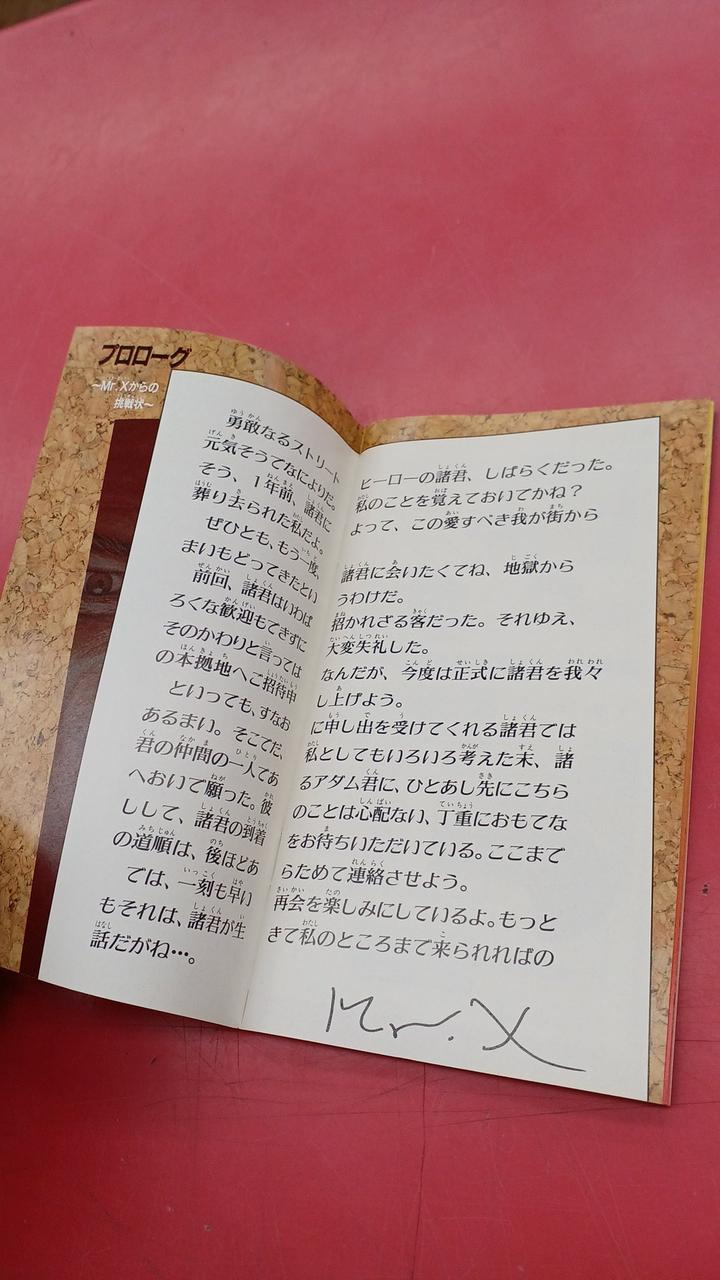 プロローグ
~Mr.Xからの
挑戦状~
勇敢なるストリートヒーローの諸君、しばらくだった。
元気そうでなによりだ。私のことを覚えておいでかね?
そう、1年前、諸君によって、この愛すべき我が街から
葬り去られた私だよ。
ぜひとも、もう一度、諸君に会いたくてね、地獄から
まいもどってきたというわけだ。
前回、諸君はいわば招かれざる客だった。それゆえ、
ろくな歓迎もできずに大変失礼した。
そのかわりと言ってはなんだが、今度は正式に諸君を我々
の本拠地へご招待申し上げよう。
といっても、すなおに申し出を受けてくれる諸君では
あるまい。そこでだ、私としてもいろいろ考えた末、諸
君の仲間の一人であるアダム君に、ひとあし先にこちら
へおいで願った。彼のことは心配ない、丁重におもてな
しして、諸君の到着をお待ちいただいている。ここまで
の道順は、後ほどあらためて連絡させよう。
では、一刻も早い再会を楽しみにしているよ。もっと
もそれは、諸君が生きて私のところまで来られればの
話だがね…。
Mr.X